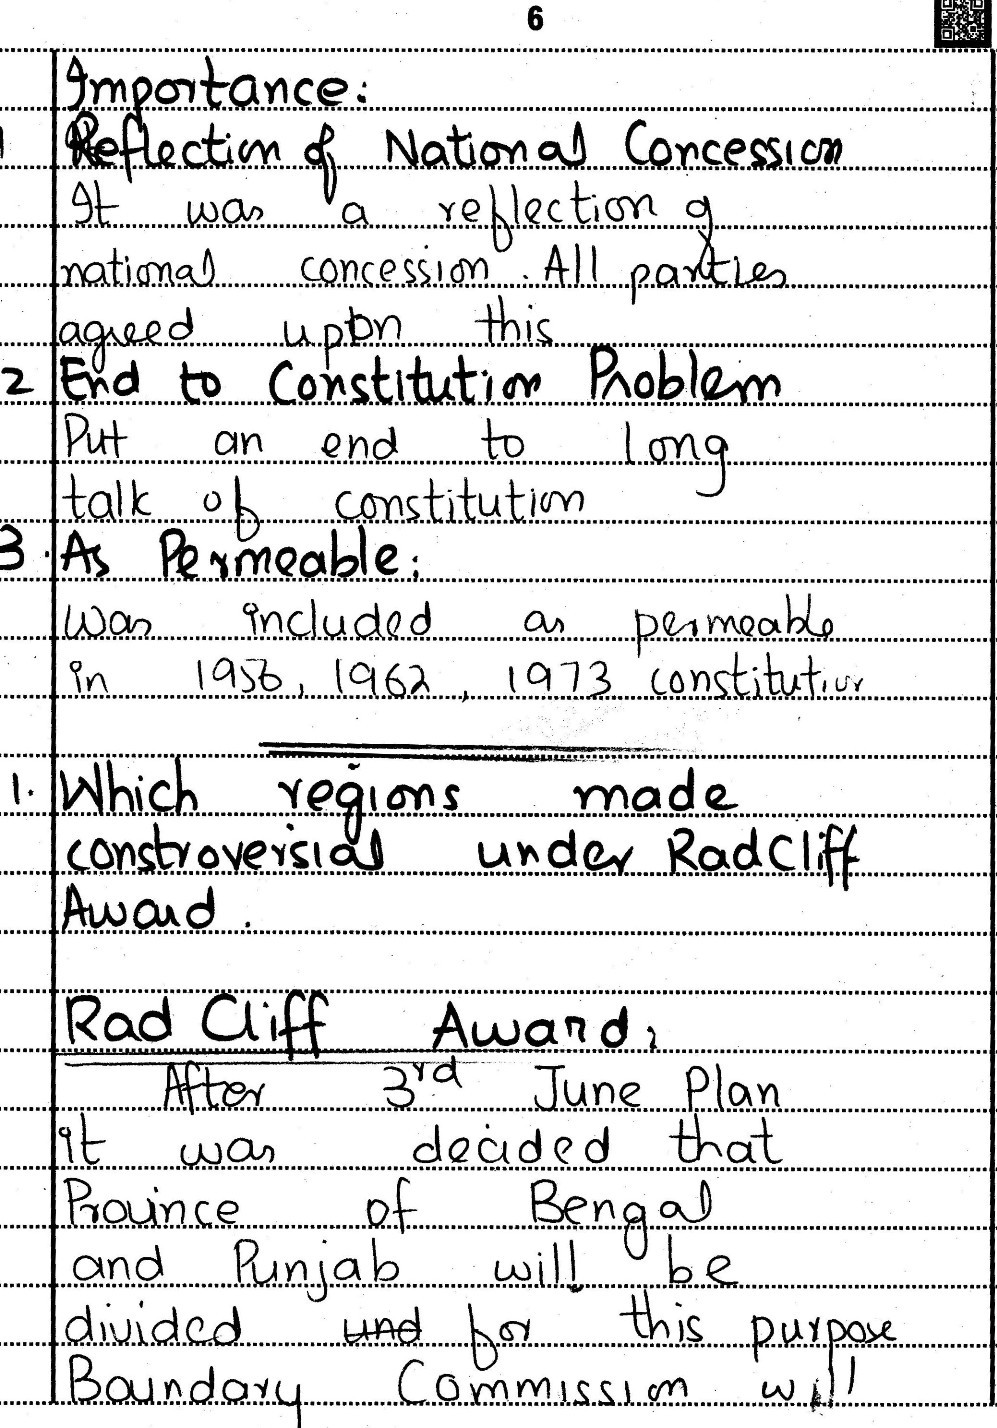 6
Importance:
1 Reflection of National Concession
It was a reflection of
national concession. All parties
agreed upon this
2 End to Constitution Problem
Put an end to long
talk of constitution
3. As Permeable:
Was included as permeable
in 1956, 1962, 1973 constitution
1. Which regions made
constroversial under RadCliff
Award.
Rad Cliff Award:
After 3rd June Plan
it was decided that
Province of Bengal
and Punjab will be
divided und for this purpose
Boundary Commission will